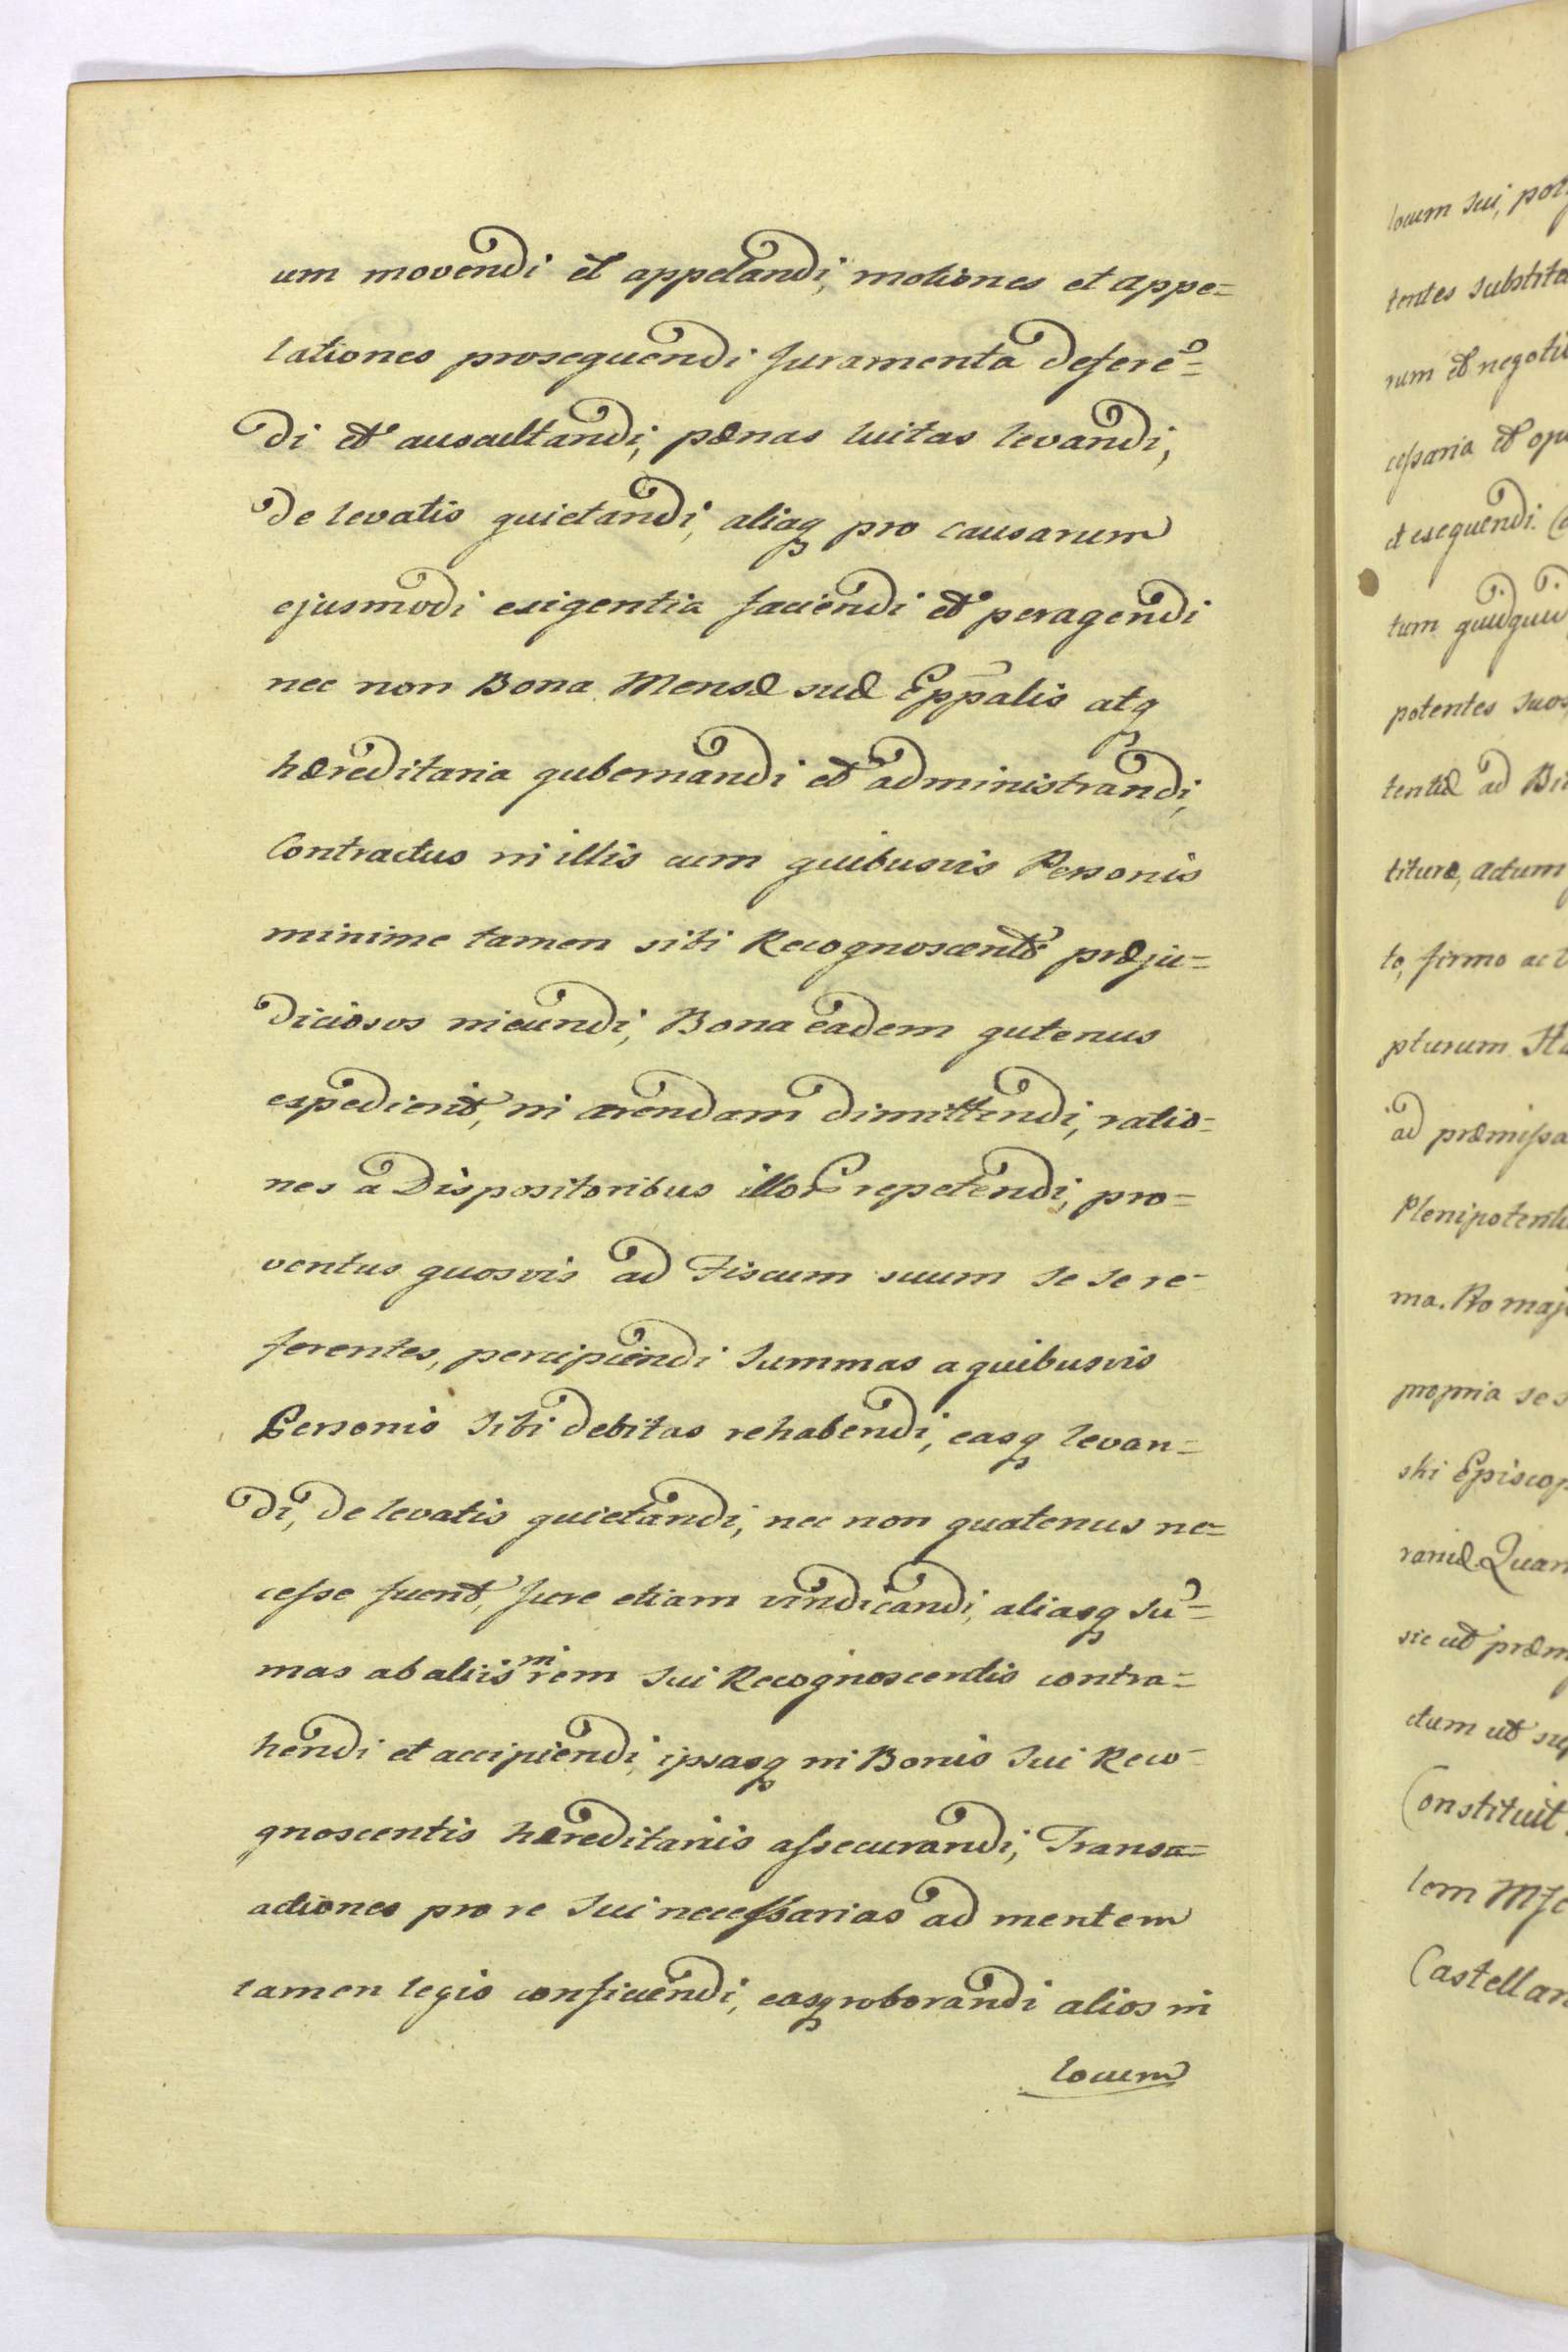 um movendi et appelandi, motiones et appe=
lationes prosequendi Juramenta deferē=
di et auscultandi, pænas luitas levandi,
de levatis quietandi, aliaq pro causarum
ejusmodi exigentia faciendi et peragendi
nec non Bona Mensæ suæ Epp̄alis atq
hæreditaria gubernandi et administrandi,
Contractus in illis cum quibusvis Personis
minime tamen sibi Recognoscenti præju=
diciosos ineundi, Bona eadem qutenus
expedierit, in arendam dimittendi, ratio=
nes a Dispositoribus illor repetendi, pro=
ventus quosvis ad Fiscum suum se se re-
ferentes, percipiendi Summas a quibusvis
Personis sibi debitas rehabendi, easq levan=
di, de levatis quietandi, nec non quatenus ne=
cesse fuerit, Jure etiam vindicandi, aliasq Su̅=
mas ab aliis in rem sui Recognoscentis contra=
hendi et accipiendi, ipsasq in Bonis sui Reco-
gnoscentis hæreditariis assecurandi, Transa=
actiones pro re sui necessarias ad mentem
tamen legis conficiendi, easq roborandi alios in
locum
locum sui,
tentes
rum et
cessaria et
et exequendi.
tum
potentes suos
tentiæ ad
tituræ, actum
to, firmo ac
pturum
ad præmissa
ma. Pro
propria
ski
raniæ.
sic ut
ctum ut
Constituit
lem